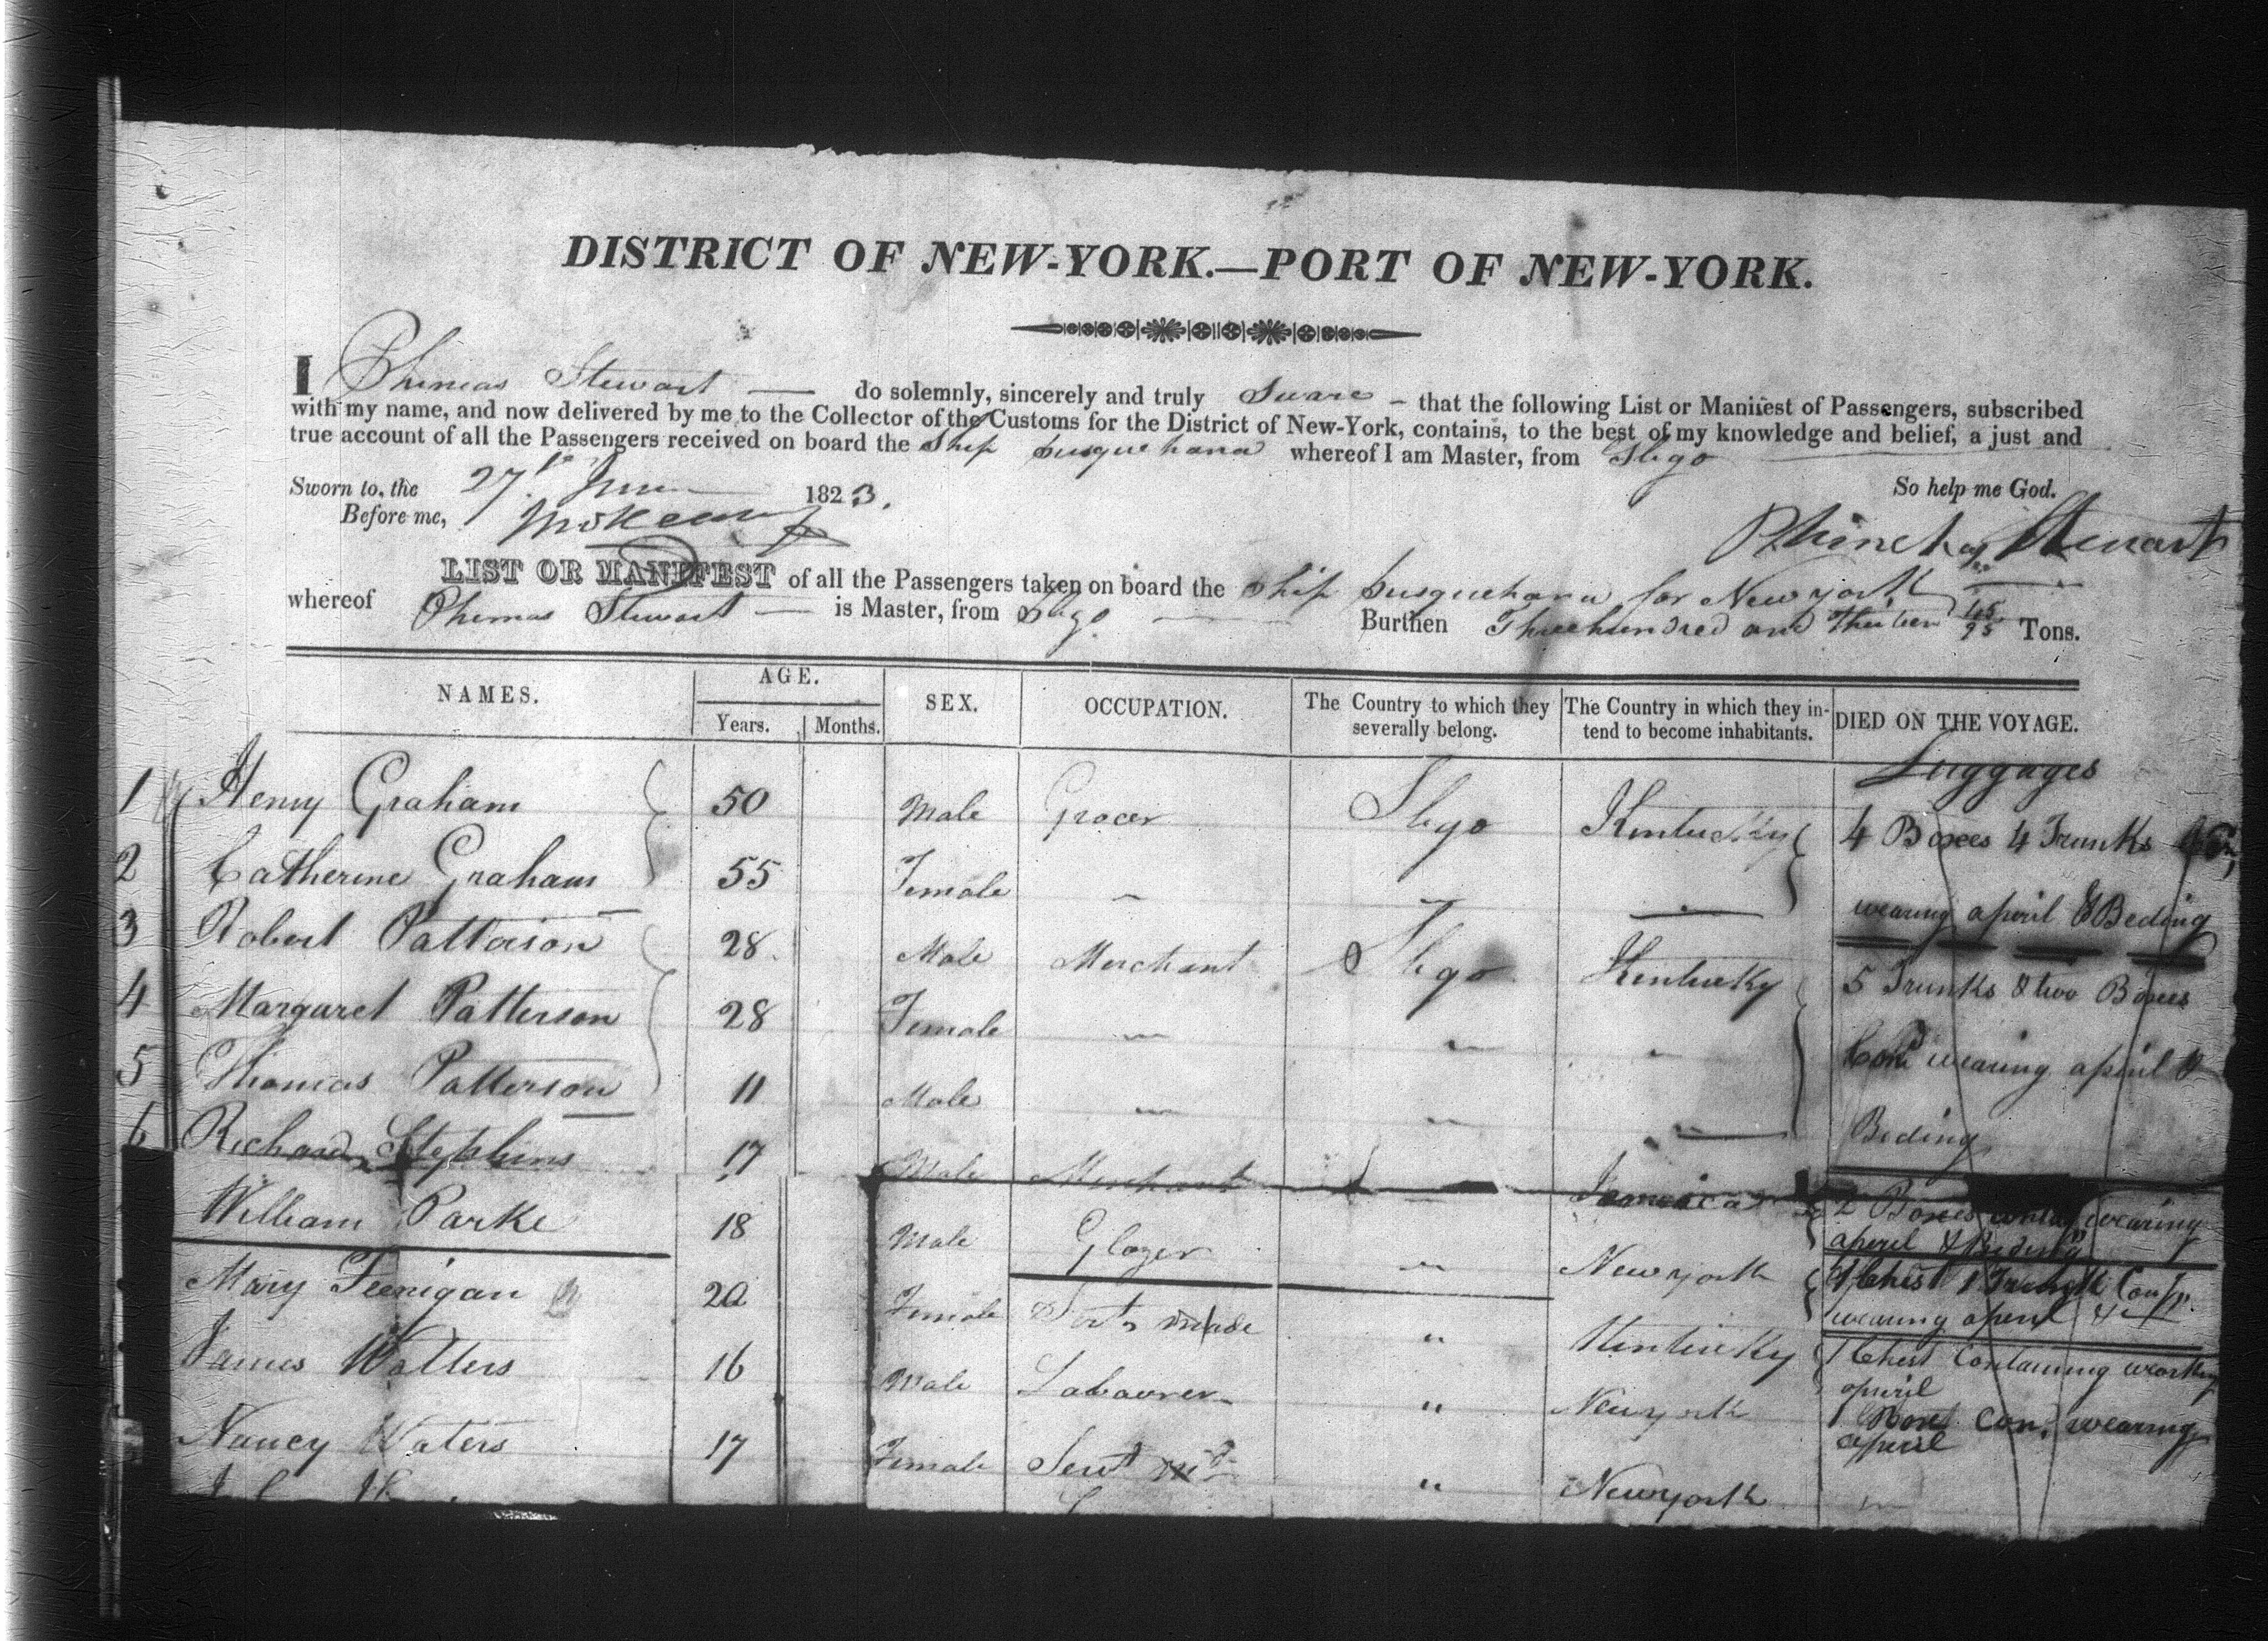 DISTRICT OF NEW-YORK.—PORT OF NEW-YORK.
I Phineas Stewart — do solemnly, sincerely and truly Sware – that the following List or Manifest of Passengers, subscribed
with my name, and now delivered by me to the Collector of the Customs for the District of New-York, contains, to the best of my knowledge and belief, a just and
true account of all the Passengers received on board the Ship Susquehana whereof I am Master, from Sligo
So help me God.
Sworn to, the 27th June 1823.
Before me,
Phinehas Stewart
LIST OR MANIFEST of all the Passengers taken on board the Ship Susquehana for New york
whereof Phineas Stewart — is Master, from Sligo — Burthen Three hundred and Thirteen 45/95 Tons.
NAMES. AGE. SEX. OCCUPATION. The Country to which they severally belong. The Country in which they intend to become inhabitants. DIED ON THE VOYAGE.
Years. Months.
Luggages
1 Henry Graham 50 Male Grocer Sligo Kentucky 4 Boxes 4 Trunks
2 Catherine Graham 55 Female – – – wearing aperil & Beding
3 Robert Patterson 28 Male Merchant Sligo Kentucky 5 Trunks & two Boxes
4 Margaret Patterson 28 Female " " " Cond wearing aperil &
5 Thomas Patterson 11 Male " " " Beding
6 Richard Stephens 17 Male Merchant Jamaica 2 Boxes wearing
aperil & Beding
William Parke 18 Male Glazer " New york 1 Chest 1 Trunk Con
wearing aperil &c
Mary Feenigan 20 Female " Kentucky 1 Chest Containing wearing
aperil
James Watters 16 Male Labourer " New york 1 Con. wearing
aperil
Nancy Waters 17 Female Sert " New york "